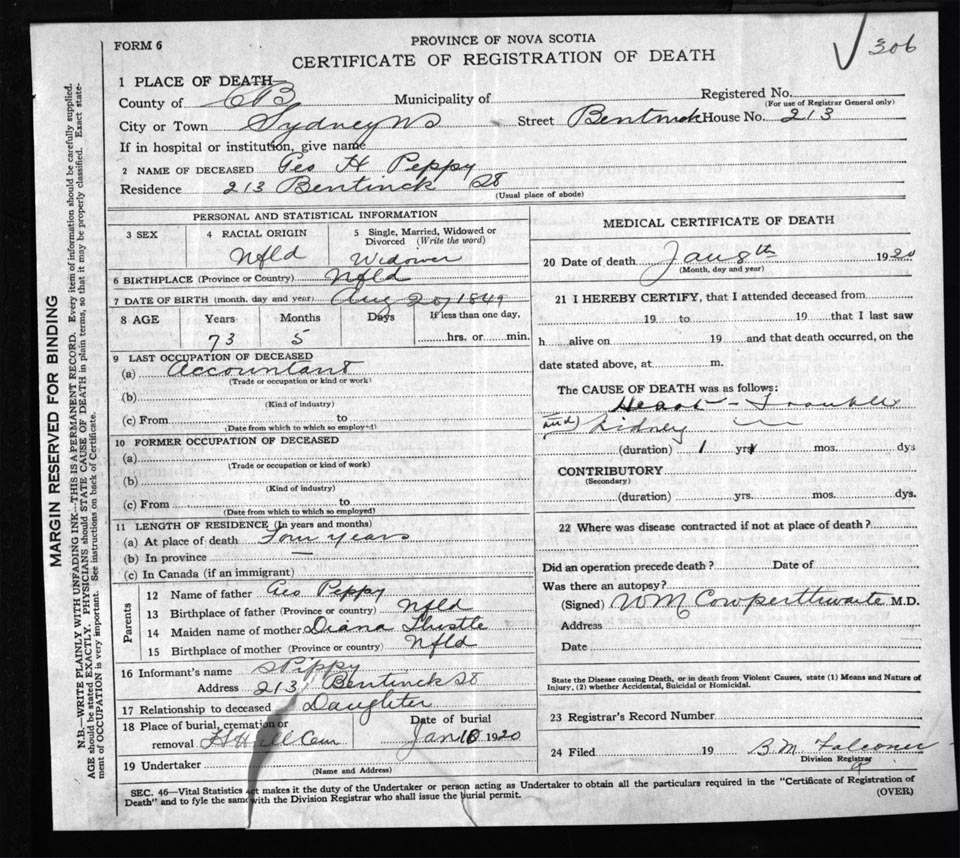 FORM 6
PROVINCE OF NOVA SCOTIA
CERTIFICATE OF REGISTRATION OF DEATH
306
1 PLACE OF DEATH
County of CB Municipality of Registered No.
(For use of Registrar General only)
City or Town Sydney NS Street Bentinck House No. 213
If in hospital or institution, give name
2 NAME OF DECEASED Geo H Peppy
Residence 213 Bentinck St
(Usual place of abode)
PERSONAL AND STATISTICAL INFORMATION
3 SEX
4 RACIAL ORIGIN
Nfld
5 Single, Married, Widowed or Divorced (Write the word)
Widower
6 BIRTHPLACE (Province or Country) Nfld
7 DATE OF BIRTH (month, day and year) Aug 20, 1849
8 AGE Years Months Days If less than one day,
73 5 hrs. or min.
9 LAST OCCUPATION OF DECEASED
(a) Accountant
(Trade or occupation or kind or work)
(b)
(Kind of industry)
(c) From to
(Date from which to which so employed)
10 FORMER OCCUPATION OF DECEASED
(a)
(Trade or occupation or kind of work)
(b)
(Kind of industry)
(c) From to
(Date from which to which so employed)
11 LENGTH OF RESIDENCE (In years and months)
(a) At place of death Four years
(b) In province —
(c) In Canada (if an immigrant)
Parents
12 Name of father Geo Peppy
13 Birthplace of father (Province or country) Nfld
14 Maiden name of mother Diana Thistle
15 Birthplace of mother (Province or country) Nfld
16 Informant's name S Pippy
Address 213 Bentinck St
17 Relationship to deceased Daughter
18 Place of burial, cremation or
removal Hill Cem
Date of burial
Jan 10 1920
19 Undertaker
(Name and Address)
MEDICAL CERTIFICATE OF DEATH
20 Date of death Jan 8th 1920
(Month, day and year)
21 I HEREBY CERTIFY, that I attended deceased from
19 to 19 that I last saw
h alive on 19 and that death occurred, on the
date stated above, at m.
The CAUSE OF DEATH was as follows:
Heart - Trouble
and Kidney
(duration) 1 yrs mos. dys
CONTRIBUTORY
(Secondary)
(duration) yrs. mos. dys.
22 Where was disease contracted if not at place of death?
Did an operation precede death? Date of
Was there an autopsy?
(Signed) WM Cowperthwaite M.D.
Address
Date
State the Disease causing Death, or in death from Violent Causes, state (1) Means and Nature of
Injury, (2) whether Accidental, Suicidal or Homicidal.
23 Registrar's Record Number
24 Filed 19 B.M. Falconer
Division Registrar
SEC. 46—Vital Statistics Act makes it the duty of the Undertaker or person acting as Undertaker to obtain all the particulars required in the "Certificate of Registration of
Death" and to fyle the same with the Division Registrar who shall issue the burial permit.
(OVER)
MARGIN RESERVED FOR BINDING
N.B.—WRITE PLAINLY WITH UNFADING INK—THIS IS A PERMANENT RECORD. Every item of information should be carefully supplied.
AGE should be stated EXACTLY. PHYSICIANS should STATE CAUSE OF DEATH in plain terms, so that it may be properly classified. Exact state-
ment of OCCUPATION is very important. See instructions on back of Certificate.